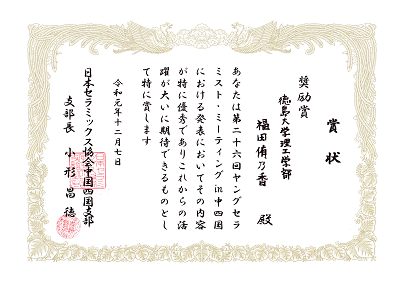 賞状
奨励賞
徳島大学理工学部
福田侑乃香 殿
あなたは第二十六回ヤングセラ
ミスト・ミーティングin中四国
における発表においてその内容
が特に優秀でありこれからの活
躍が大いに期待できるものとし
て特に賞します
令和元年十二月七日
日本セラミックス協会中国四国支部
支部長 小形昌徳